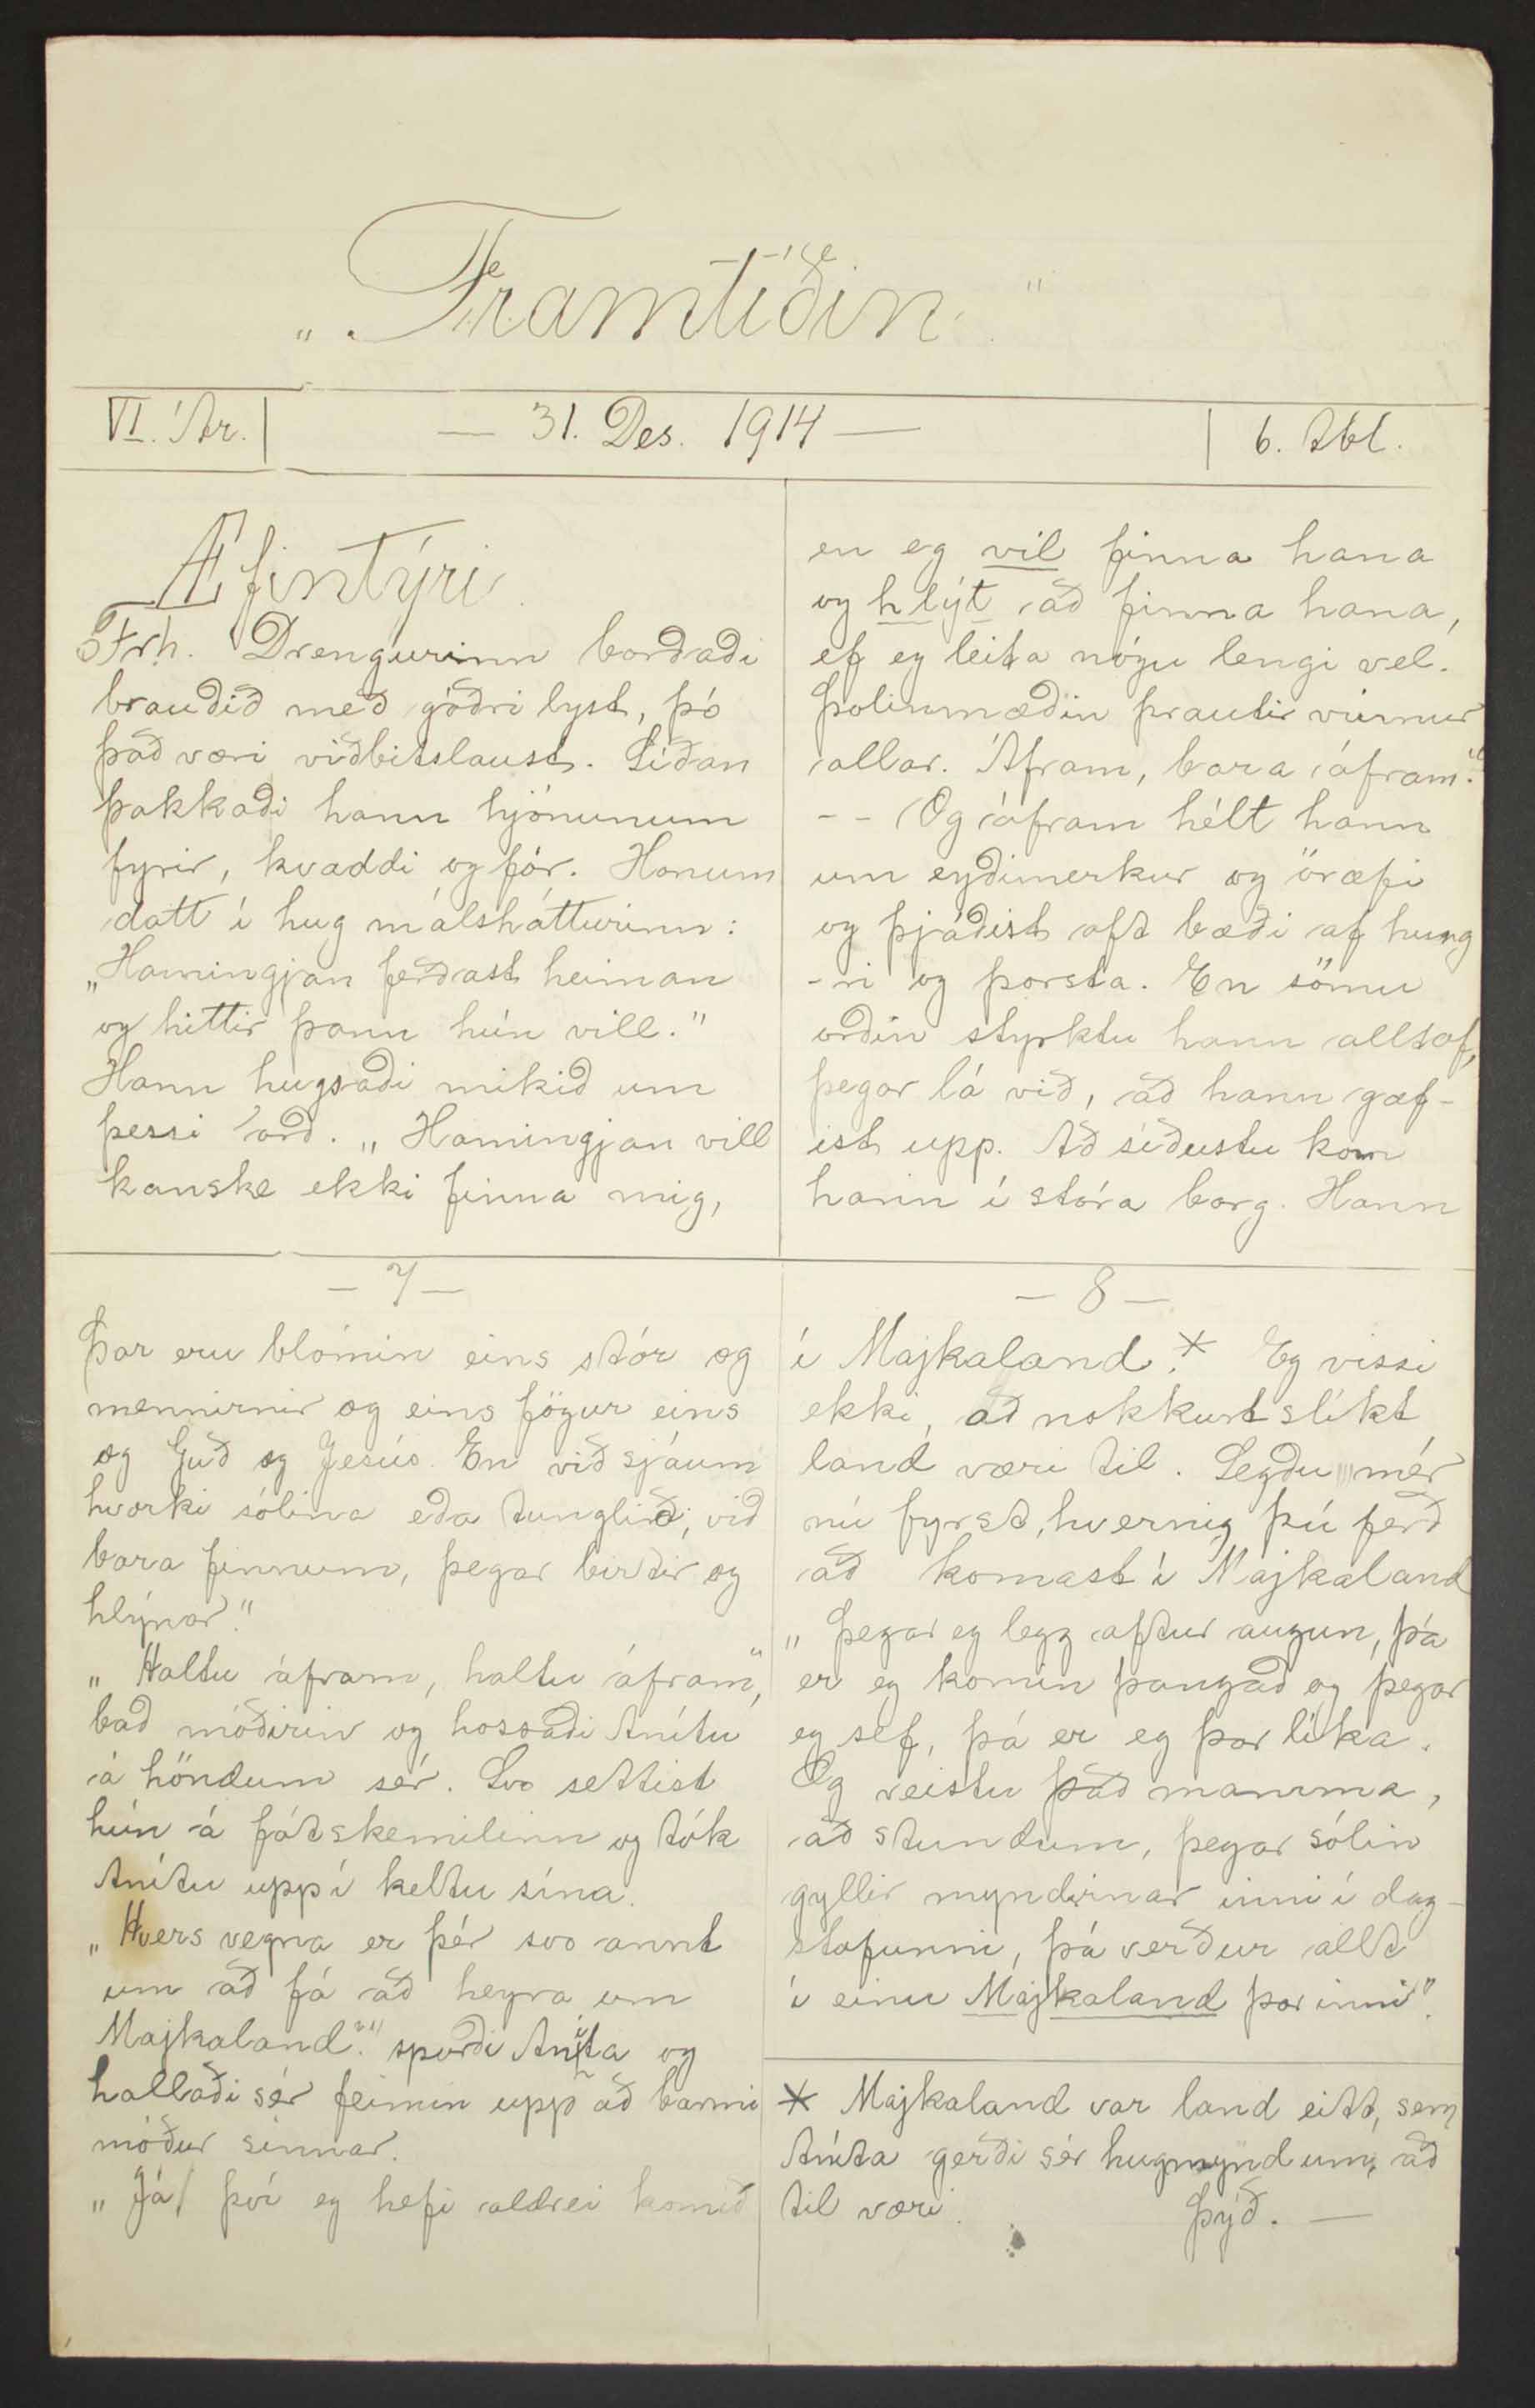 „Framtíðin"
VI. Ár.
— 31. Des. 1914 —
6. tbl.
Æfintýri.
Frh. Drengurinn borðaði
brauðið með góðri lyst, þó
það væri viðbitslaust. Síðan
þakkaði hann hjónunum
fyrir, kvaddi og fór. Honum
datt í hug málshátturinn:
„Hamingjan ferðast heiman
og hittir þann hún vill."
Hann hugsaði mikið um
þessi orð. „Hamingjan vill
kanske ekki finna mig,
en eg vil finna hana
og hlýt að finna hana,
ef eg leita nógu lengi vel.
Þolinmæðin þrautir vinnur
allar. Áfram, bara áfram."
-- Og áfram hélt hann
um eyðimerkur og öræfi
og þjáðist oft bæði af hung
-ri og þorsta. En sömu
orðin styrktu hann alltaf,
þegar lá við, að hann gæf-
ist upp. Að síðustu kom
hann í stóra borg. Hann
— 7 —
Þar eru blómin eins stór og
mennirnir og eins fögur eins
og Guð og Jesús. En við sjáum
hvorki sólina eða tunglið, við
bara finnum, þegar birtir og
hlýnar."
„Haltu áfram, haltu áfram",
bað móðirin og hossaði Anítu
á höndum sér. Svo settist
hún á fótskemilinn og tók
Anítu upp í keltu sína.
„Hvers vegna er þér svo annt
um að fá að heyra um
Majkaland?" spurði Aníta og
hallaði sér feimin upp að barmi
móður sinnar.
„Já, því eg hefi aldrei komið
— 8 —
í Majkaland.* Eg vissi
ekki, að nokkurt slíkt
land væri til. Segðu mér
nú fyrst, hvernig þú ferð
að komast í Majkaland
„Þegar eg legg aftur augun, þá
er eg komin þangað og þegar
eg sef, þá er eg þar líka.
Og veistu það mamma,
að stundum, þegar sólin
gyllir myndirnar inni í dag-
stofunni, þá verður allt
í einu Majkaland þar inni".
* Majkaland var land eitt, sem
Aníta gerði sér hugmynd um, að
til væri. Þýð. —